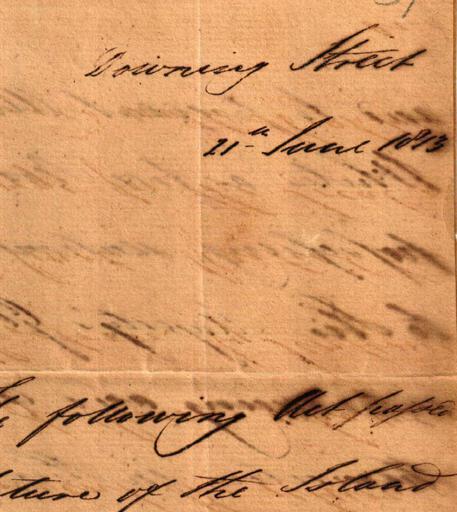 Downing Street
21th June 1813
following Act passed
ture of the Island